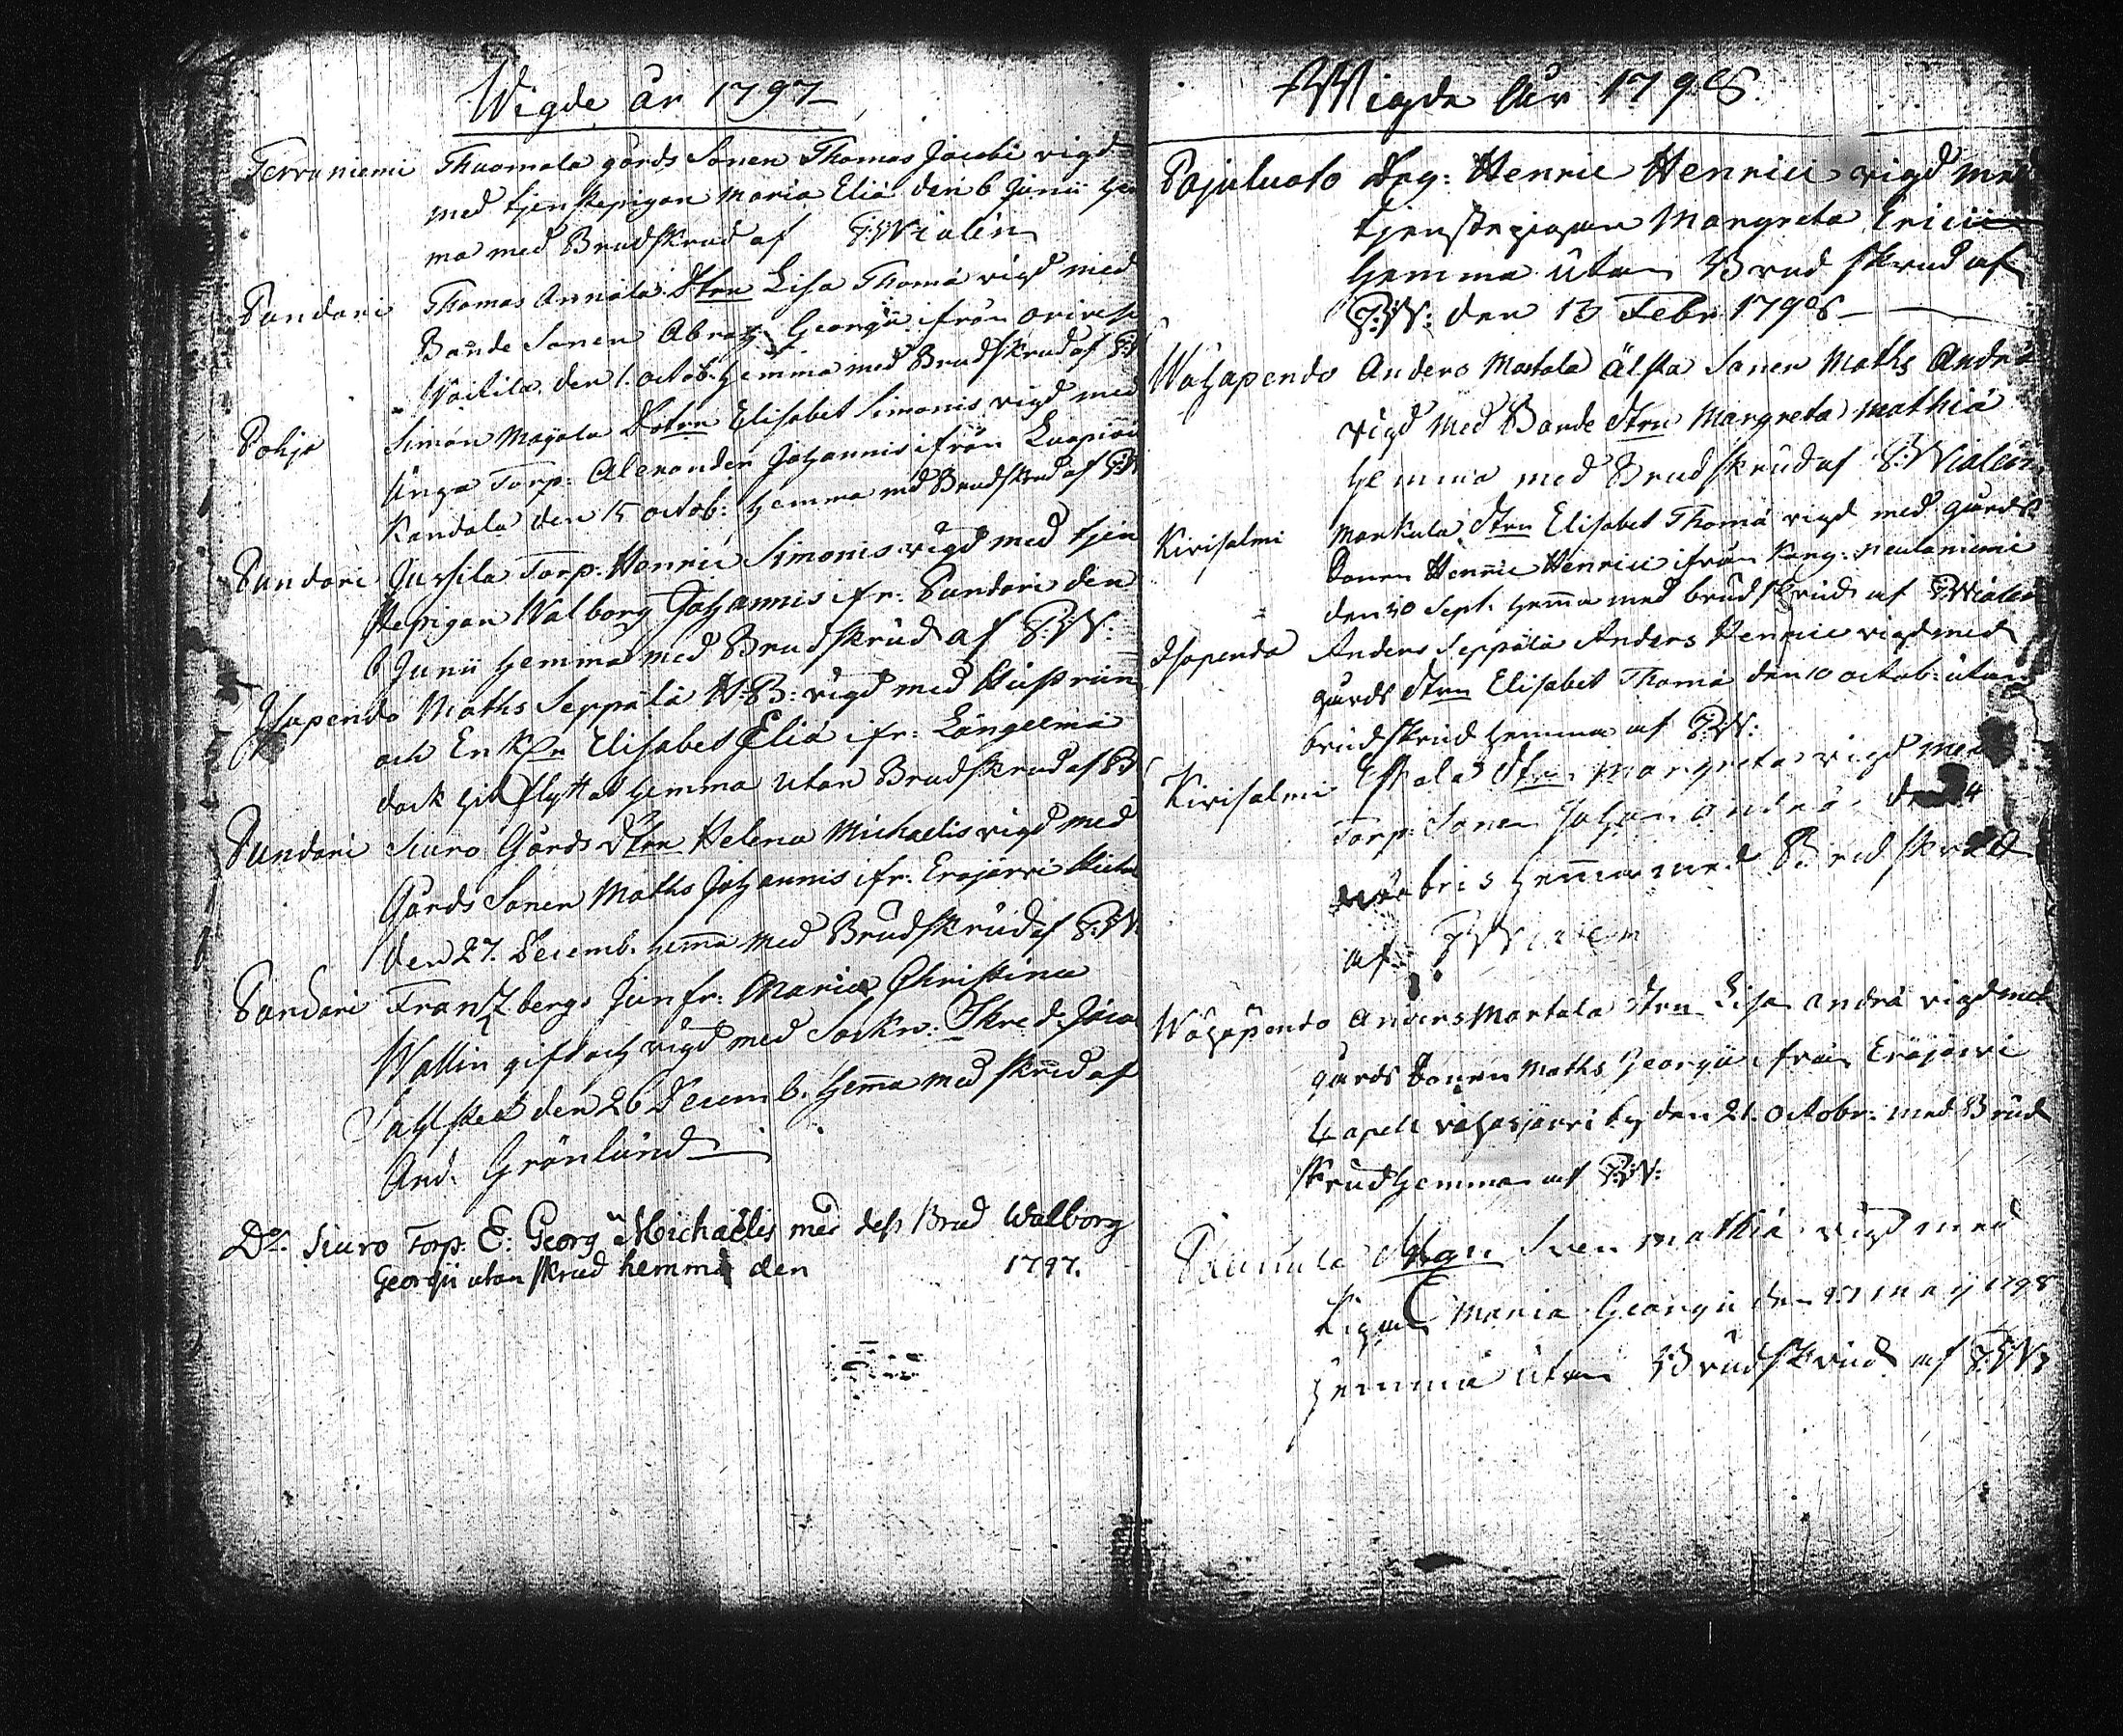 Wigde år 1797
Terraniemi Thuomala gårds Sonen Thomas Jacobi vigd
med tjenstepigan Maria Eliæ den 6 Junii hem
ma med Brudskrud af P:Wialén
Pundari Thomas Annala Dtren Lisa Thomæ vigd med
Bonde Sonen Abrah: Georgii ifrån Orivesi
Voitila den 1. octob. hemma med Brudskrud af P:W
Pohja Simon Majala Dotren Elisabet Simonis vigd med
Unga Torp: Alexander Johannis ifrån
den 15 octob: hemma med Brudskrud af P:W
Pundari Jussila Torp: Henric Simonis vigd med tjen
stepigan Walborg Johannis ifr: Pundari den
6 Junii hemma med Brudskrud af P:W:
Isapendo Maths Seppälä vigd med Hustrun
och Enkan Elisabet Eliæ ifr: Längelmä
dock hit flyttat hemma utan Brudskrud af P
Pundari Siuro Gårds Dtren Helena Michaelis vigd med
Gårds Sonen Maths Johannis ifr. Erajärvi
den 27. Decemb. hemma med Brudskrud af P:W:
Pundari Frantzbergs Junfr: Maria Christina
Wallin gift och vigd med Sockn: Skred: Jaco
den 26 Decemb. hemma med skrud af
And. Grönlund
Do. Siuro Torp: E: Georg Michaëlis med dess Brud Walborg
Georgii utan skrud hemma den 1797.
Wigde år 1798
Pajuluoto Drg: Henric Henrici vigd med
tjenstepigan Margreta Ericii
hemma utan Brud skrud af
P:W: den 13 Febr 1798
Wähäpendo Anders Martala älsta Sonen Maths Andræ
vigd med Bonde dtren Margreta Mathiæ
hemma med Brudskrud af P:Wialén
Kirisalmi Markula dtren Elisabet Thomæ vigd med gårds
Sonen Henric Henrici ifrån Kang: Neulaniemi
den 30 Sept. hemma med brudskrud af P:Wialén
Isapendo Anders Seppälä Anders Henric vigd med
gårds dtren Elisabet Thomæ den 10 octob: utan
brudskrud hemma af P:W:
Kirisalmi dtren Margreta vigd med
Torp: Sonen Johan Andræ
hemma med Brudskrud
af P:Wialen
Wähäpendo Anders Martala dtren Lisa Andræ vigd med
gårds Sonen Maths Georgii ifrån Eräjärvi
Capell vähäsjärvi by den 21. octobr: med Brud
skrud hemma af P:W:
Sven Mathiæ vigd med
Pigan Maria Georgii den 27 Maij 1798
hemma utan Brudskrud af P:W: